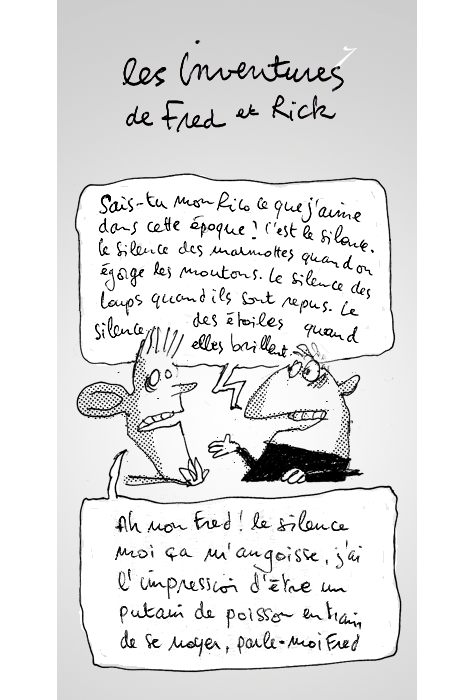 les inventures 7
de Fred et Rick
Sais-tu mon Rico ce que j'aime
dans cette époque? C'est le silence.
le silence des marmottes quand on
égorge les moutons. Le silence des
loups quand ils sont repus. Le
silence des étoiles quand
elles brillent.
Ah non Fred! le silence
moi ça m'angoisse, j'ai
l'impression d'être un
putain de poisson en train
de se noyer, parle-moi Fred